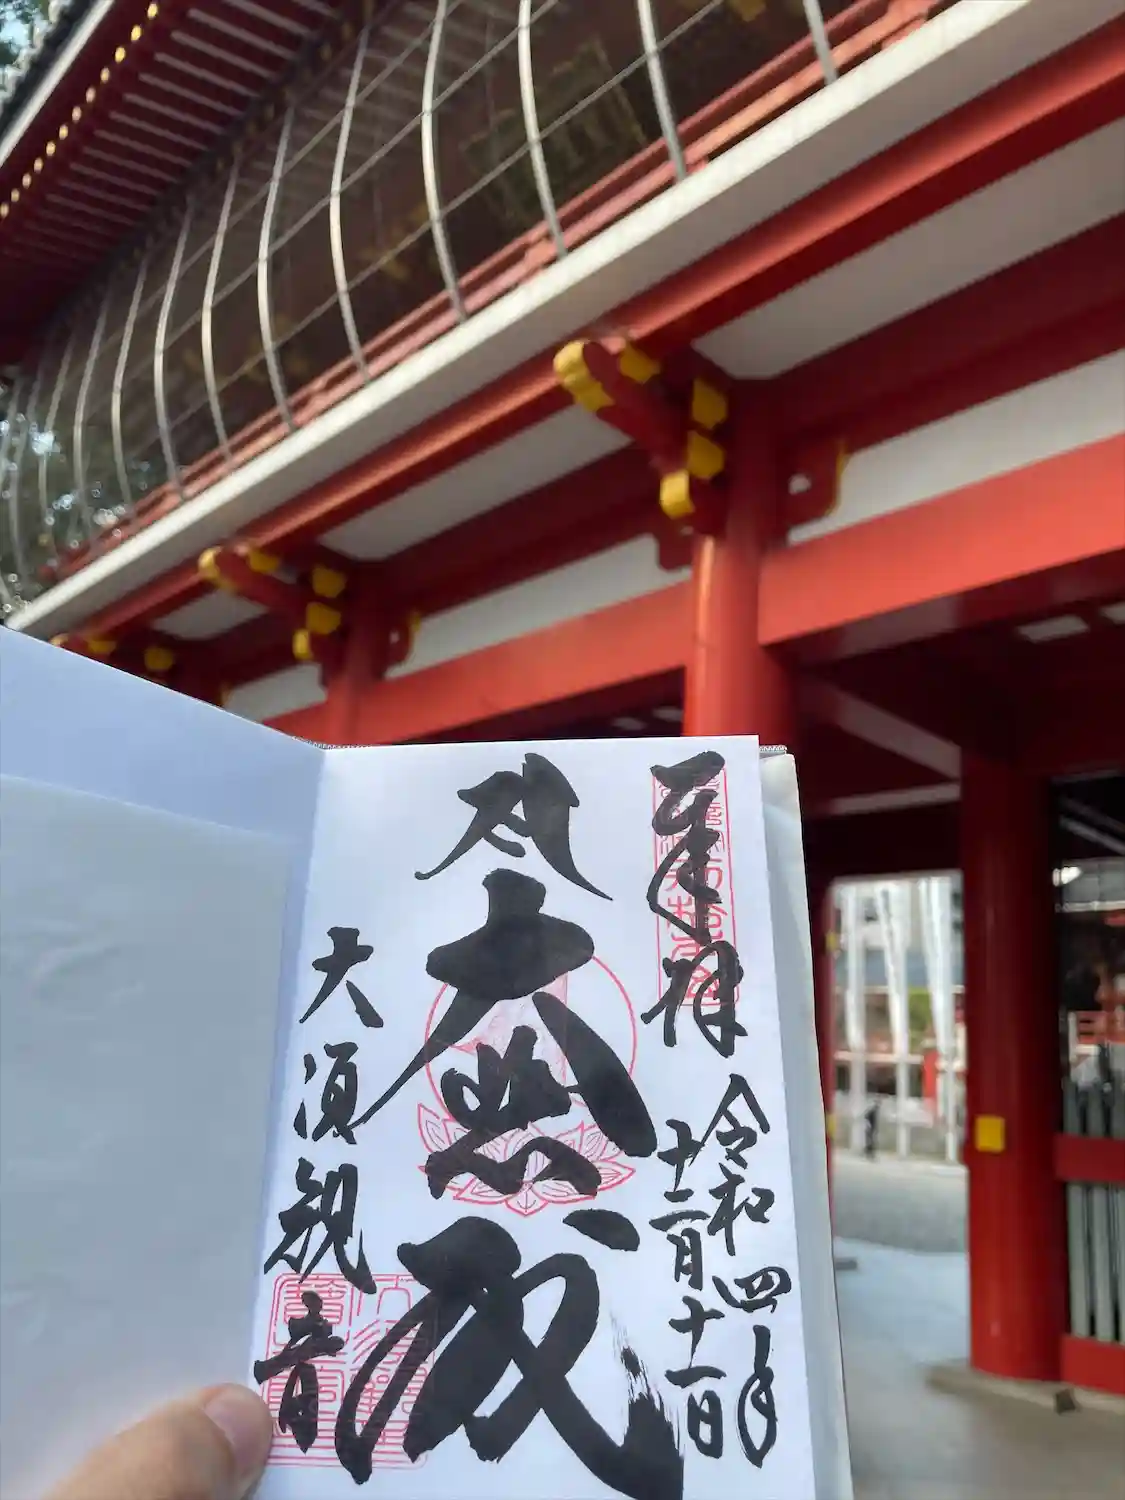 奉拝
令和四年
十二月十一日
大悲殿
大須観音